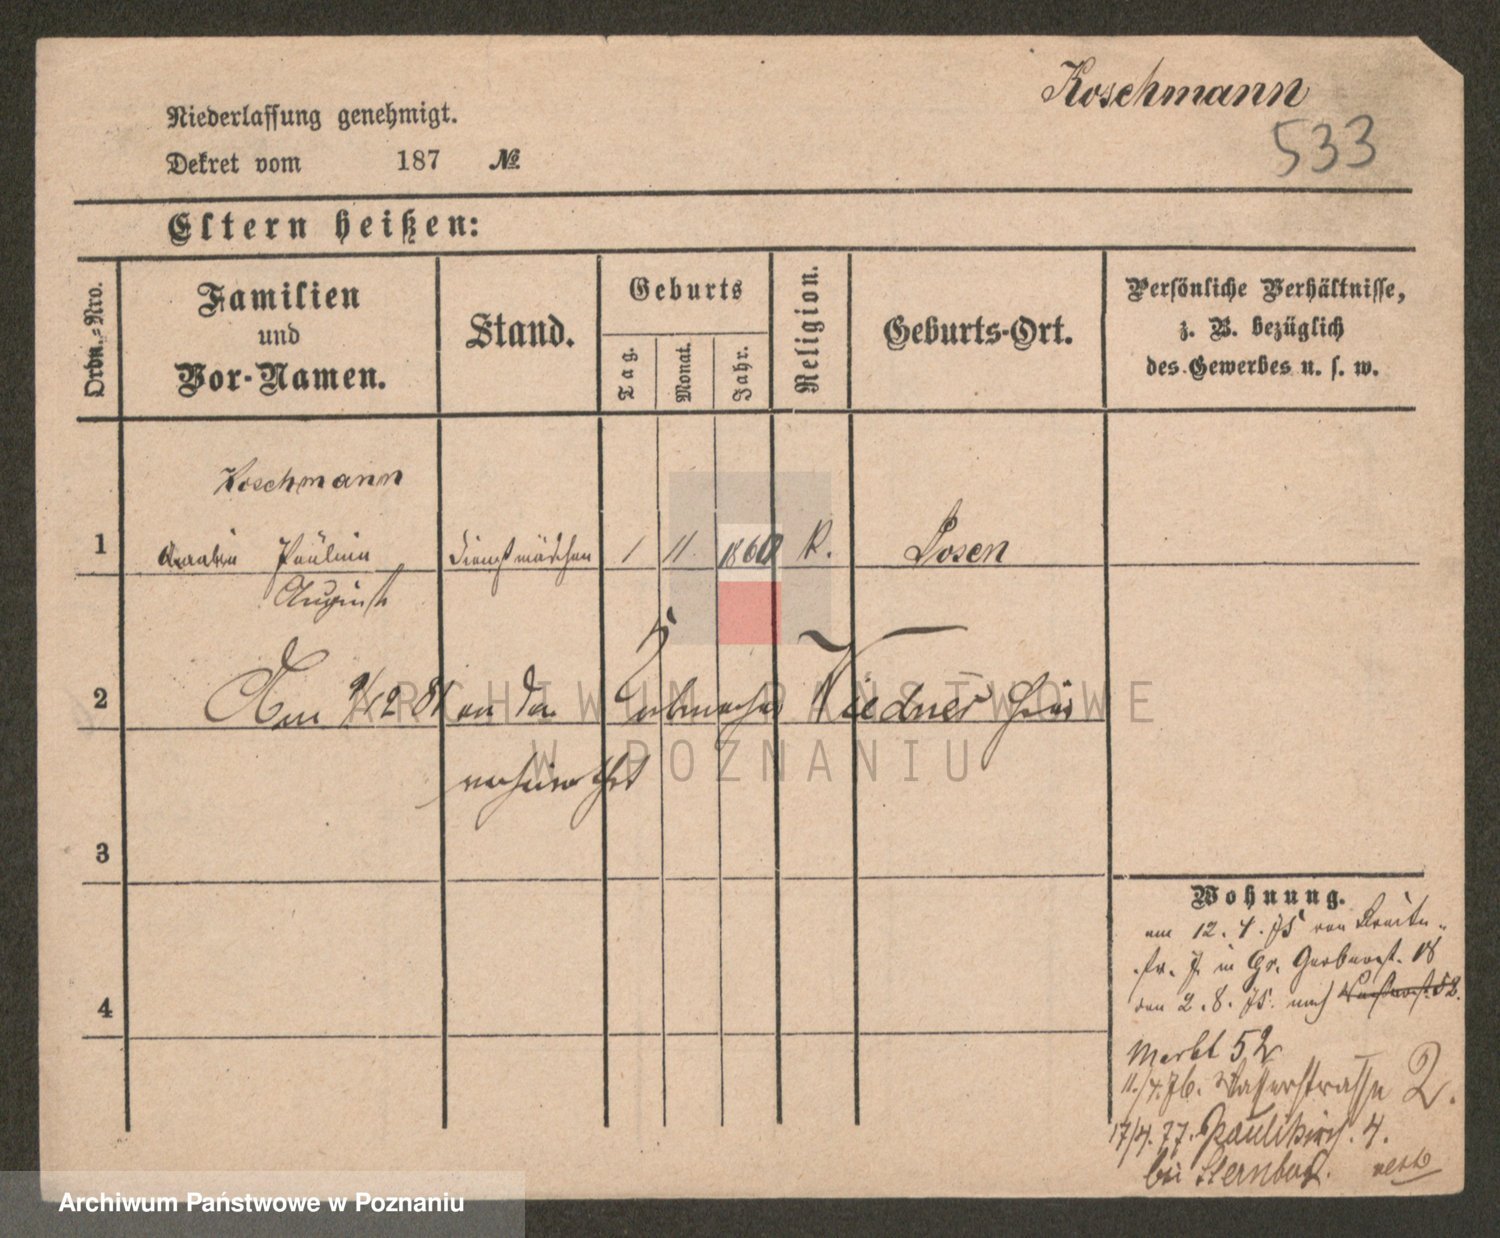 Koschmann
533
Niederlassung genehmigt.
Dekret vom 187 №
Eltern heißen:
Ordn.-Nro.
Familien
und
Vor-Namen.
Stand.
Geburts
Tag.
Monat.
Jahr.
Religion.
Geburts-Ort.
Persönliche Verhältnisse,
z. B. bezüglich
des Gewerbes u. s. w.
Koschmann
1 Pauline Dienstmädchen 1 11 1860 K. Posen
Auguste
2 Am 9/12 81 an den Wiedner
verheirathet
3
4
Wohnung.
am 12. 4. 75 von Breite-
str. 7 in Gr. Gerberst. 18
den 2. 8. 75. nach 52.
Markt 52
11./4. 76. Wasserstrasse 2.
17/4. 77. Paulikirch. 4.
bei
ARCHIWUM PAŃSTWOWE
W POZNANIU
Archiwum Państwowe w Poznaniu